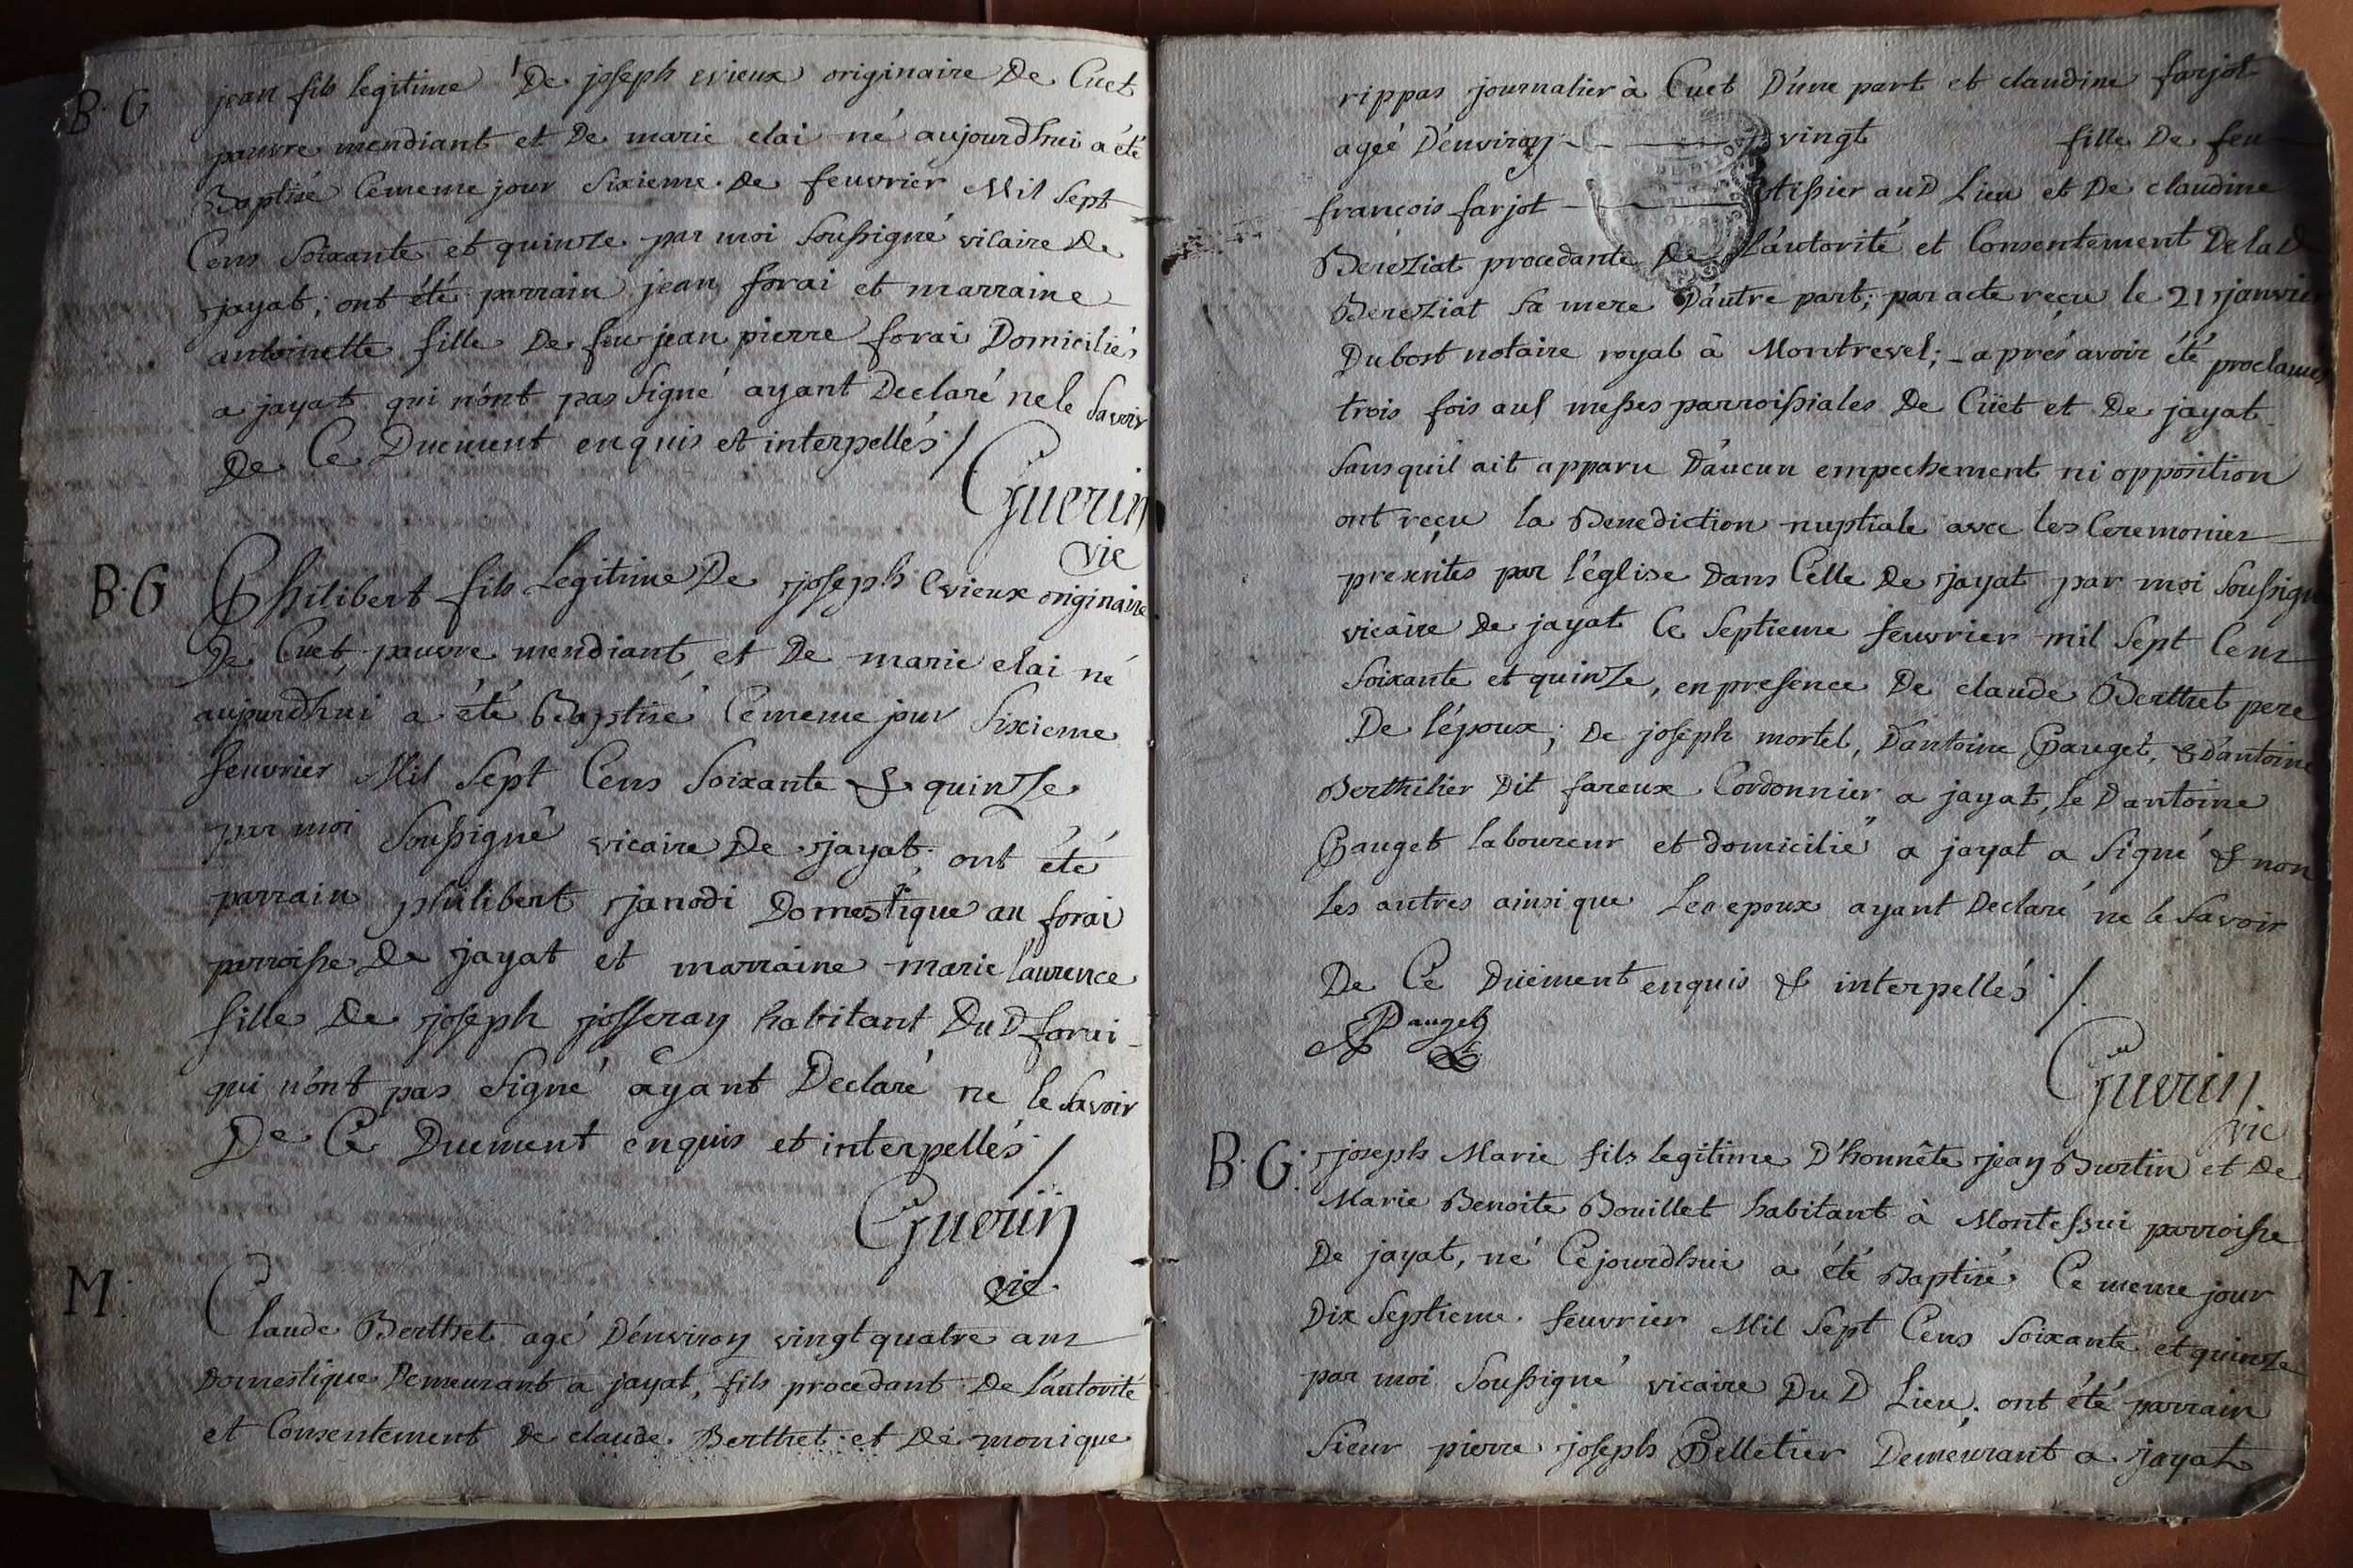 B. G
jean fils legitime De joseph evieux originaire De Cuet
pauvre mendiant et De marie elai né aujourdhui a été
Baptisé Cememe jour Sixieme De feuvrier Mil Sept
Cens Soixante et quinze par moi Soussigné vicaire De
jayat; ont été parrain jean forai et marraine
antoinette fille De feu jean pierre forai Domiciliés
a jayat qui n'ont pas Signé ayant Declaré ne le Savoir
De Ce Duement enquis et interpellés /
Guerin
vic
B. G
Philibert fils Legitime De joseph Evieux originaire
De Cuet, pauvre mendiant, et De marie elai né
aujourdhui a été Baptisé Cememe jour Sixieme
feuvrier Mil Sept Cens Soixante & quinze
par moi Soussigné vicaire De jayat; ont été
parrain philibert janodi Domestique au forai
parroisse De jayat et marraine marie laurence
fille De joseph josseray habitant Du D forai
qui n'ont pas Signé ayant Declaré ne le Savoir
De Ce Duement enquis et interpellés /
Guerin
vic
M.
Claude Berthet agé D'environ vingt quatre ans
Domestique Demeurant a jayat, fils procedant De l'autorité
et Consentement De claude Berthet et De monique
rippas journalier à Cuet D'une part et claudine farjot
ageé D'environ vingt fille De feu
françois farjot tissier au D Lieu et De claudine
Bereziat procedante De l'autorité et Consentement De la D
Bereziat Sa mere D'autre part; par acte reçu le 21 janvier
Dubost notaire royal à Montrevel; aprés avoir été proclamés
trois fois aux messes parroissiales De Cüet et De jayat
Sans quil ait apparu D'aucun empechement ni opposition
ont reçu la Benediction nuptiale avec les Ceremonies
prescrites par l'église Dans Celle De jayat par moi Soussigné
vicaire De jayat Ce Septieme feuvrier mil Sept Cens
Soixante et quinze, en presence De claude Berthet pere
De l'époux; De joseph mortel, D'antoine Pauget, & D'antoine
Berthilier Dit fareux Cordonnier a jayat, le D antoine
Pauget laboureur et domicilié a jayat a Signé & non
les autres ainsi que Les epoux ayant Declaré ne le Savoir
De Ce Duement enquis & interpellés /.
Pauget
Guerin
vic
B. G.
joseph Marie fils legitime D'honnête jean Burtin et De
Marie Benoite Bouillet habitant à Montessui parroisse
De jayat, né Cejourdhui a été Baptisé Ce meme jour
Dix Septieme feuvrier Mil Sept Cens Soixante et quinze
par moi Soussigné vicaire Du D Lieu; ont été parrain
Sieur pierre joseph Pelletier Demeurant a jayat